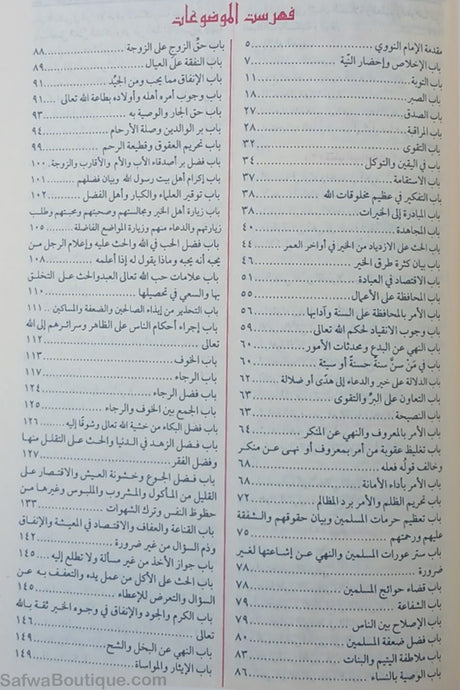 فهرست الموضوعات
مقدمة الإمام النووي ٥
باب الإخلاص وإحضار النيّة ٧
باب التوبة ١١
باب الصبر ١٨
باب الصدق ٢٧
باب المراقبة ٢٨
باب التقوى ٣٢
باب في اليقين والتوكل ٣٤
باب الاستقامة ٣٧
باب التفكير في عظيم مخلوقات الله ٣٨
باب المبادرة إلى الخيرات ٣٨
باب المجاهدة ٤٠
باب الحث على الازدياد من الخير في أواخر العمر ٤٤
باب بيان كثرة طرق الخير ٤٦
باب الاقتصاد في العبادة ٥١
باب المحافظة على الأعمال ٥٥
باب الأمر بالمحافظة على السنة وآدابها ٥٦
باب وجوب الانقياد لحكم الله تعالى ٥٩
باب النهي عن البدع ومحدثات الأمور ٦٠
باب في مَنْ سنَّ سنةً حسنةً أو سيئة ٦٠
باب الدلالة على خير والدعاء إلى هدًى أو ضلالة ٦٢
باب التعاون على البرِّ والتقوى ٦٣
باب النصيحة ٦٣
باب الأمر بالمعروف والنهي عن المنكر ٦٤
باب تغليظ عقوبة من أمر بمعروف أو نهى عن منكر
وخالف قولُه فعله ٦٨
باب الأمر بأداء الأمانة ٦٨
باب تحريم الظلم والأمر برد المظالم ٧٢
باب تعظيم حرمات المسلمين وبيان حقوقهم والشفقة
عليهم ورحمتهم ٧٥
باب ستر عورات المسلمين والنهي عن إشاعتها لغير
ضرورة ٧٨
باب قضاء حوائج المسلمين ٧٨
باب الشفاعة ٧٩
باب الإصلاح بين الناس ٧٩
باب فضل ضعفة المسلمين ٨٠
باب ملاطفة اليتيم والبنات ٨٣
باب الوصية بالنساء ٨٦
باب حقِّ الزوج على الزوجة ٨٨
باب النفقة على العيال ٨٩
باب الإنفاق مما يحب ومن الجيِّد ٩١
باب وجوب أمره أهله وأولاده بطاعة الله تعالى ٩١
باب حق الجار والوصية به ٩٣
باب بر الوالدين وصلة الأرحام ٩٤
باب تحريم العقوق وقطيعة الرحم ٩٩
باب فضل بر أصدقاء الأب والأم والأقارب والزوجة ١٠٠
باب إكرام أهل بيت رسول الله وبيان فضلهم ١٠١
باب توقير العلماء والكبار وأهل الفضل ١٠٢
باب زيارة أهل الخير ومجالستهم وصحبتهم ومحبتهم وطلب
زيارتهم والدعاء منهم وزيارة المواضع الفاضلة ١٠٥
باب فضل الحب في الله والحث عليه وإعلام الرجل من
يحبه أنه يحبه وماذا يقول له إذا أعلمه ١٠٨
باب علامات حب الله تعالى العبد والحث على التخلق
بها والسعي في تحصيلها ١١٠
باب التحذير من إيذاء الصالحين والضعفة والمساكين ١١١
باب إجراء أحكام الناس على الظاهر وسرائرهم إلى الله
تعالى ١١٢
باب الخوف ١١٣
باب الرجاء ١١٧
باب فضل الرجاء ١٢٤
باب الجمع بين الخوف والرجاء ١٢٥
باب فضل البكاء من خشية الله تعالى وشوقًا إليه ١٢٦
باب فضل الزهد في الدنيا والحث على التقلل منها
وفضل الفقر ١٢٧
باب فضل الجوع وخشونة العيش والاقتصار على
القليل من المأكول والمشروب والملبوس وغيرها من
حظوظ النفس وترك الشهوات ١٣٣
باب القناعة والعفاف والاقتصاد في المعيشة والإنفاق
وذم السؤال من غير ضرورة ١٤٢
باب جواز الأخذ من غير مسألة ولا تطلع إليه ١٤٥
باب الحث على الأكل من عمل يده والتعفف به عن
السؤال والتعرض للإعطاء ١٤٥
باب الكرم والجود والإنفاق في وجوه الخير ثقة بالله
تعالى ١٤٦
باب النهي عن البخل والشح ١٤٩
باب الإيثار والمواساة ١٤٩
SafwaBoutique.com